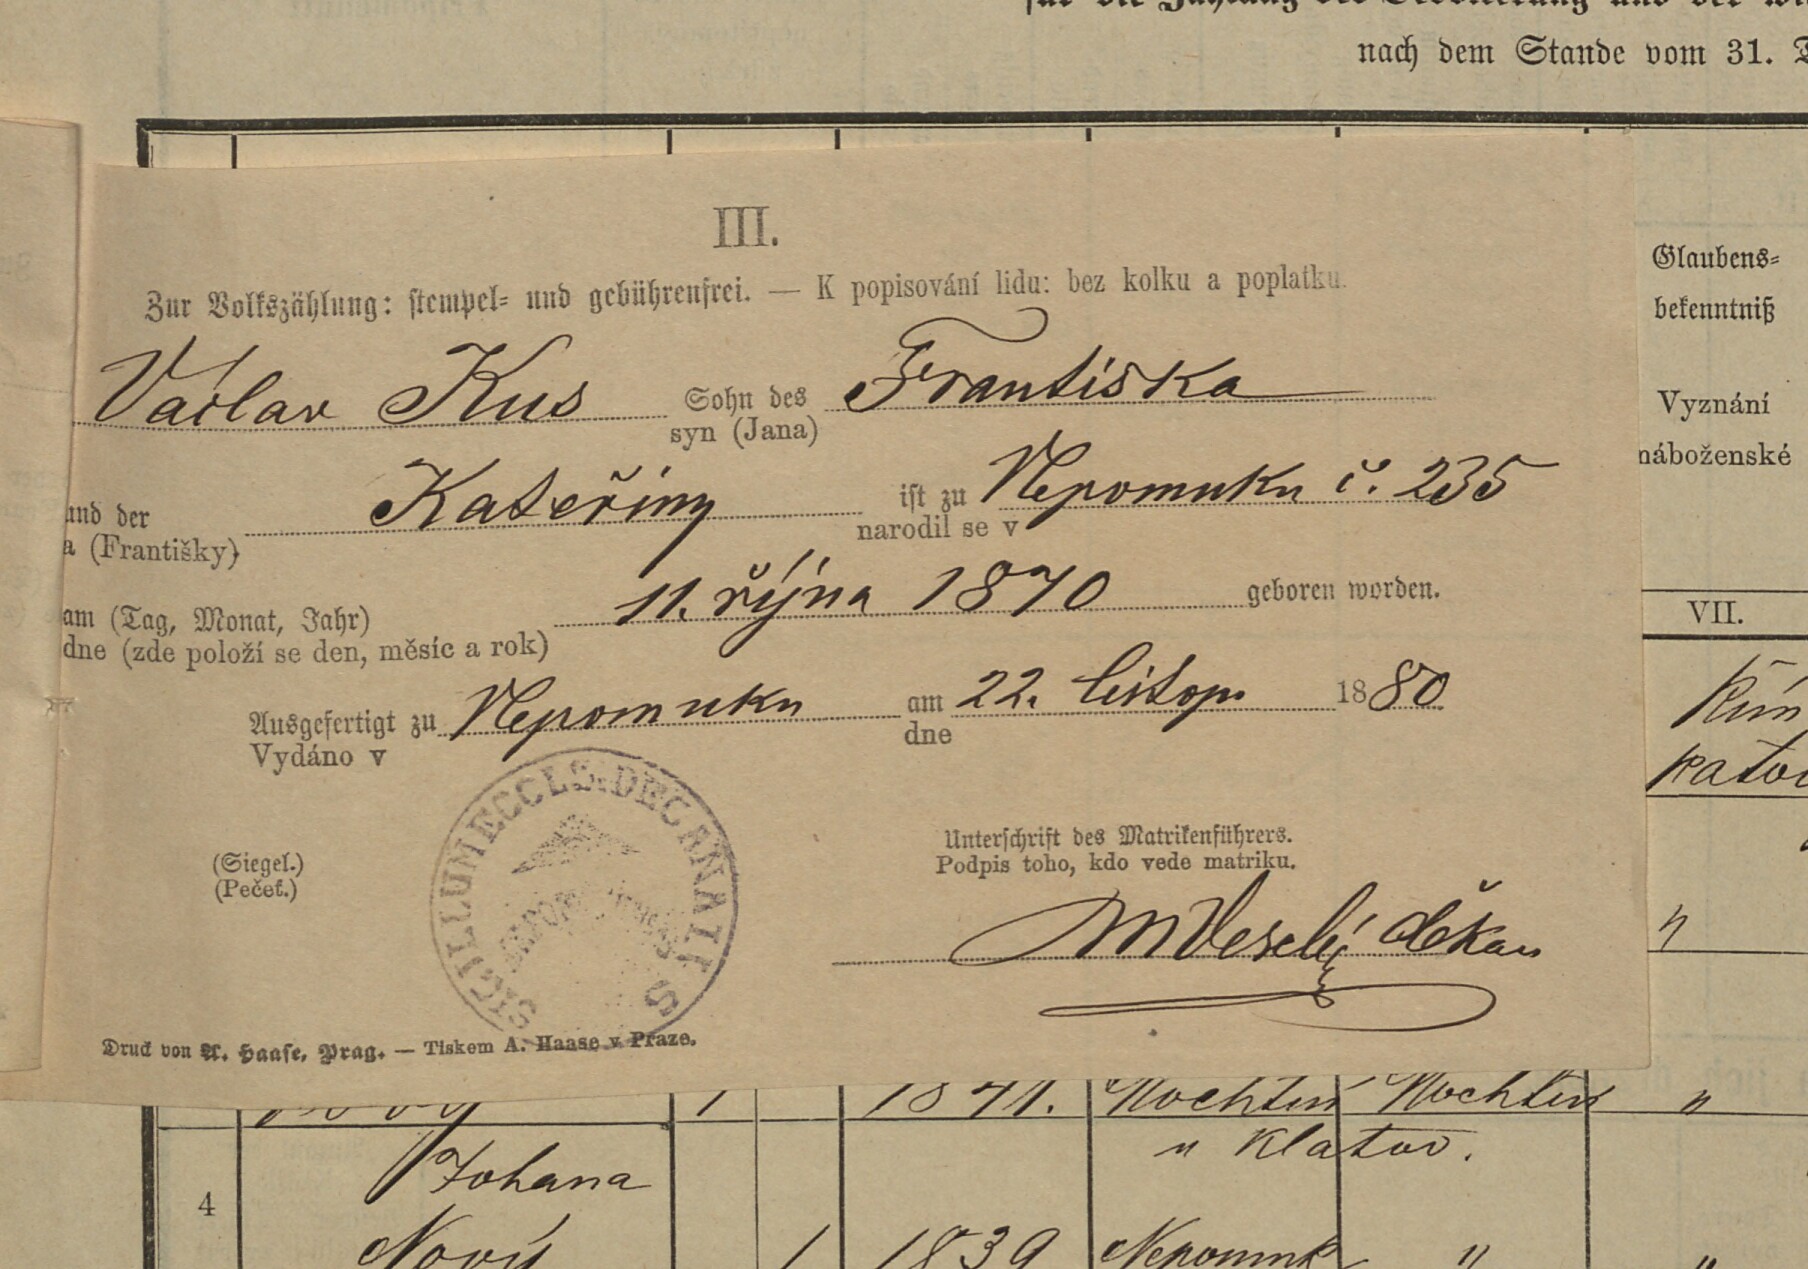 nach dem Stande vom 31.
III.
Zur Volkszählung: stempel- und gebührenfrei. — K popisování lidu: bez kolku a poplatku.
Václav Kus Sohn des Františka
syn (Jana)
und der Kateřiny ist zu Nepomuku č. 235
a (Františky) narodil se v
am (Tag, Monat, Jahr) 11. října 1870 geboren worden.
dne (zde položí se den, měsíc a rok)
Ausgefertigt zu Nepomuku am 22. listop. 1880.
Vydáno v dne
(Siegel.)
(Pečeť.)
SIGILLUM ECCLS. DECANALIS
Unterschrift des Matrikenführers.
Podpis toho, kdo vede matriku.
MVeselý děkan
Druck von A. Haase, Prag. — Tiskem A. Haase v Praze.
Glaubens-
bekenntniß
Vyznání
náboženské
VII.
Řím
katol
"
1 1841. Mochtín Mochtín "
u Klatov.
Johana
4
Nový 1 1839 Nepomuk " "